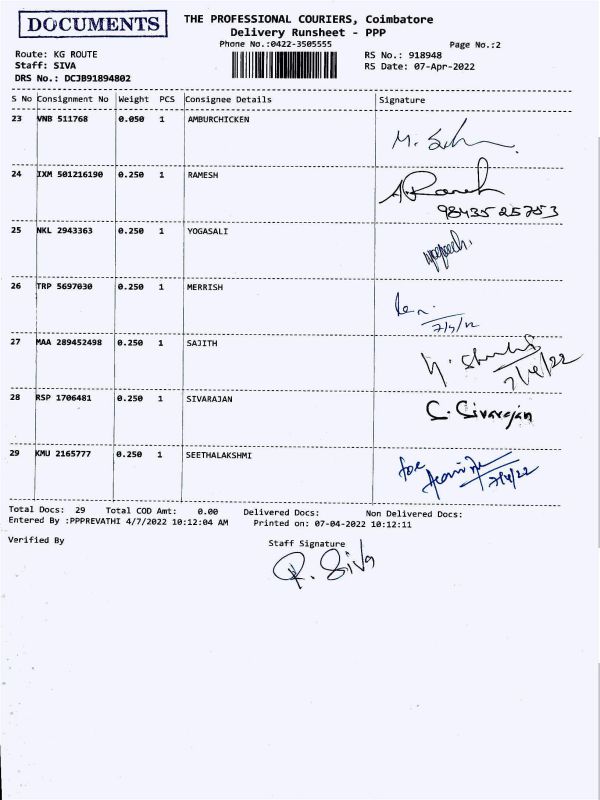 DOCUMENTS
THE PROFESSIONAL COURIERS, Coimbatore
Delivery Runsheet - PPP
Phone No.:0422-3505555 Page No.:2
Route: KG ROUTE RS No.: 918948
Staff: SIVA RS Date: 07-Apr-2022
DRS No.: DCJB91894802
S No Consignment No Weight PCS Consignee Details Signature
23 VNB 511768 0.050 1 AMBURCHICKEN
24 IXM 501216190 0.250 1 RAMESH
98435 25753
25 NKL 2943363 0.250 1 YOGASALI
26 TRP 5697030 0.250 1 MERRISH
27 MAA 289452498 0.250 1 SAJITH
28 RSP 1706481 0.250 1 SIVARAJAN
C. Sivarajan
29 KMU 2165777 0.250 1 SEETHALAKSHMI
for
7/4/22
Total Docs: 29 Total COD Amt: 0.00 Delivered Docs: Non Delivered Docs:
Entered By :PPPREVATHI 4/7/2022 10:12:04 AM Printed on: 07-04-2022 10:12:11
Verified By Staff Signature
R. Siva